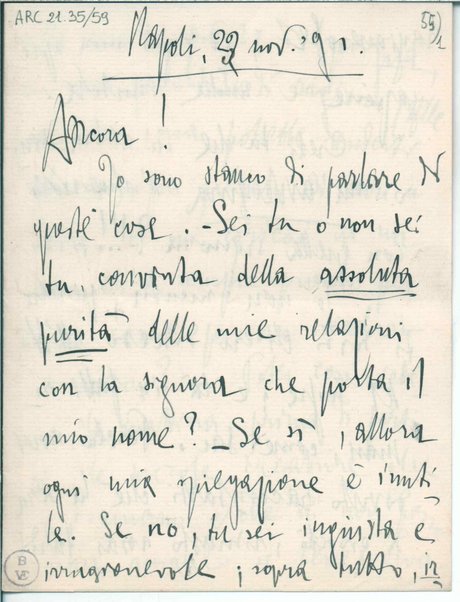 ARC 21.35/59
55/1
Napoli, 22 nov. 91.
Ancora!
Io sono stanco di parlare di
queste cose. - Sei tu o non sei
tu convinta della assoluta
purità delle mie relazioni
con la signora che porta il
mio nome? - Se sì, allora
ogni mia spiegazione è inuti
le. Se no, tu sei ingiusta e
irragionevole; sopra tutto, ir
B
VE